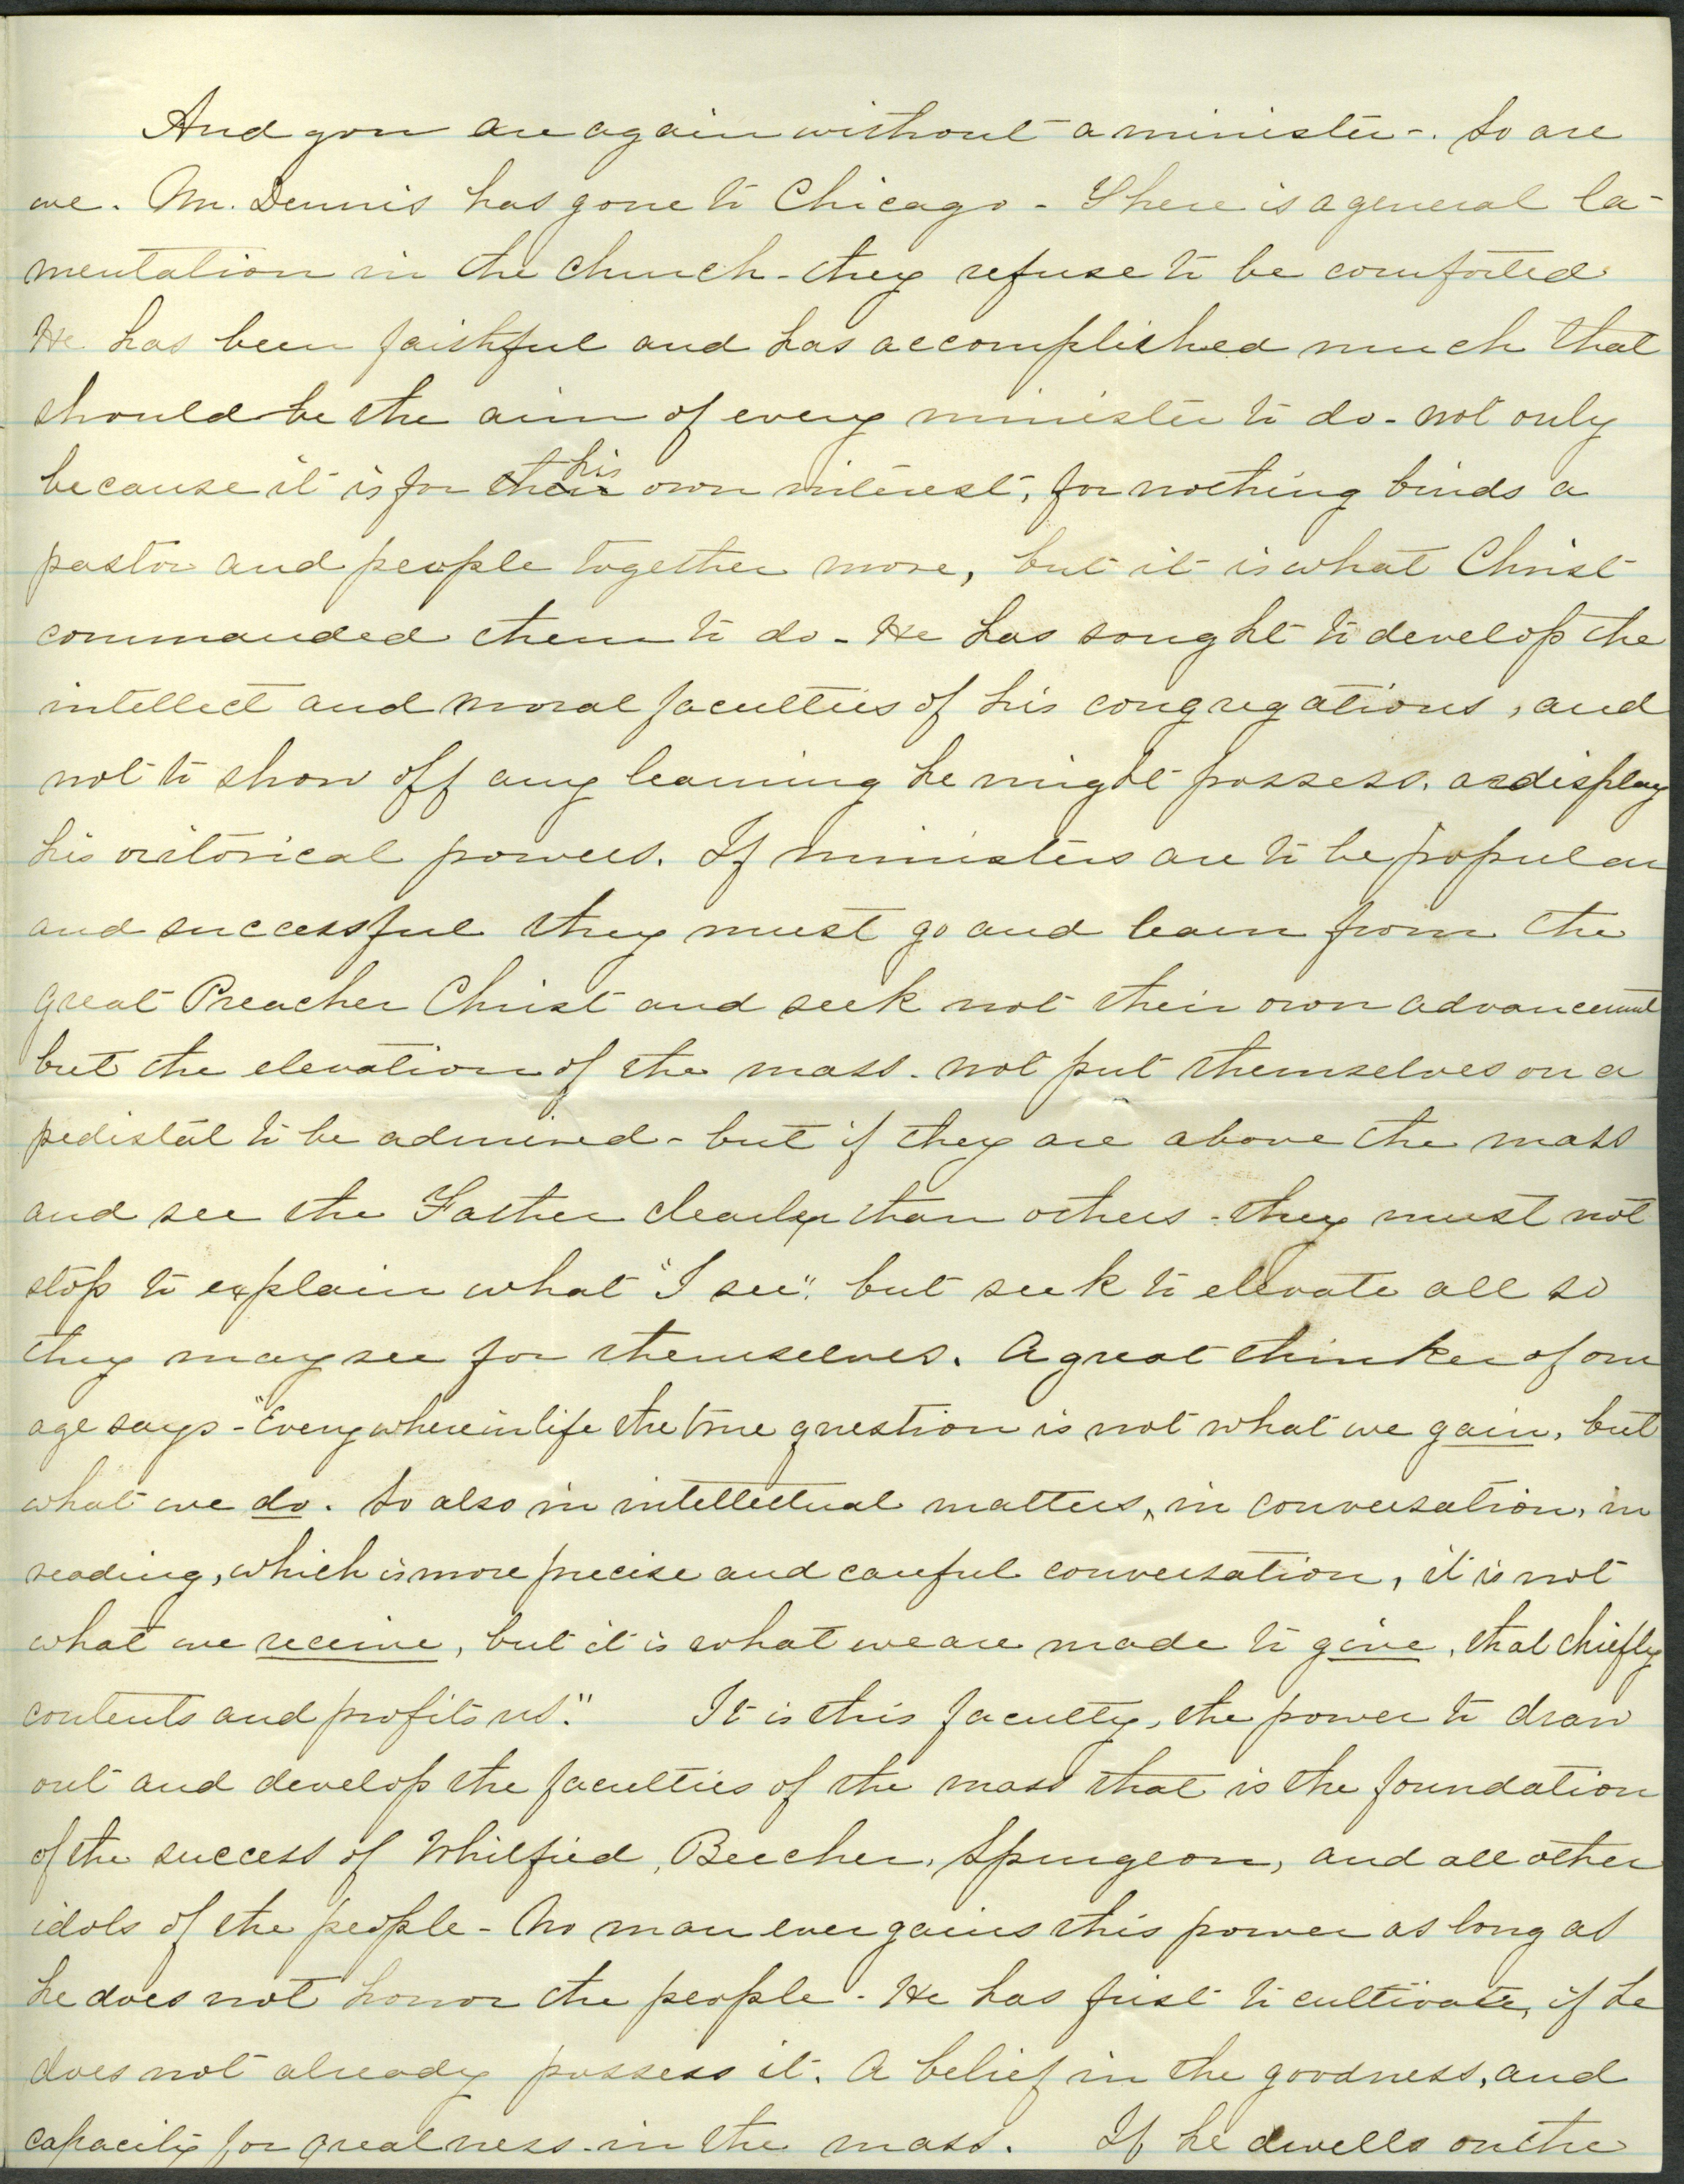 And you are again without a minister-. So are
we. Mr. Dennis has gone to Chicago - There is a general la-
mentation in the church - they refuse to be comforted
He has been faithful and has accomplished much that
should be the aim of every minister to do - not only
because it is for their his own interest, for nothing binds a
pastor and people together more, but it is what Christ
commanded them to do - He has sought to develop the
intellect and moral faculties of his congregations, and
not to show off any learning he might possess. or display
his oritorical powers. If ministers are to be popular
and successful they must go and learn from the
great Preacher Christ and seek not their own advancement
but the elevation of the mass. not put themselves on a
pedistal to be admired - but if they are above the mass
and see the Father clearly than others - they must not
stop to explain what "I see". but seek to elevate all so
they may see for themselves. A great thinker of our
age says - "Everywhere in life the true question is not what we gain, but
what we do. So also in intellectual matters, in conversation, in
reading, which is more precise and careful conversation, it is not
what we receive, but it is what we are made to give, that chiefly
contents and profits us." It is this faculty, the power to draw
out and develop the faculties of the mass that is the foundation
of the success of Whitfied, Beecher, Spurgeon, and all other
idols of the people - No man ever gains this power as long as
he does not honor the people - He has first to cultivate, if he
does not already possess it. A belief in the goodness, and
capacity for greatness - in the mass. If he dwells on the